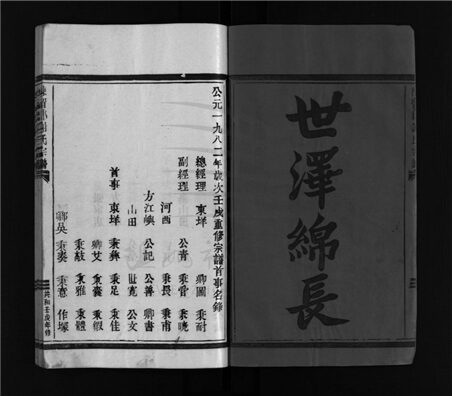 世澤綿長
公元一九八二年歲次壬戌重修宗譜首事名錄
總經理 東垟 卿圖 秉耐
副經理 公青 秉曾 秉曉
河西 秉長 秉甫
方江嶼 公記 公善 卿書
山田 世寬 公文
首事 東垟 秉彝 秉足 秉佳
卿艾 秉囊 秉假
秉敖 秉雅 秉體
鄒吳 秉奏 秉意 作塚